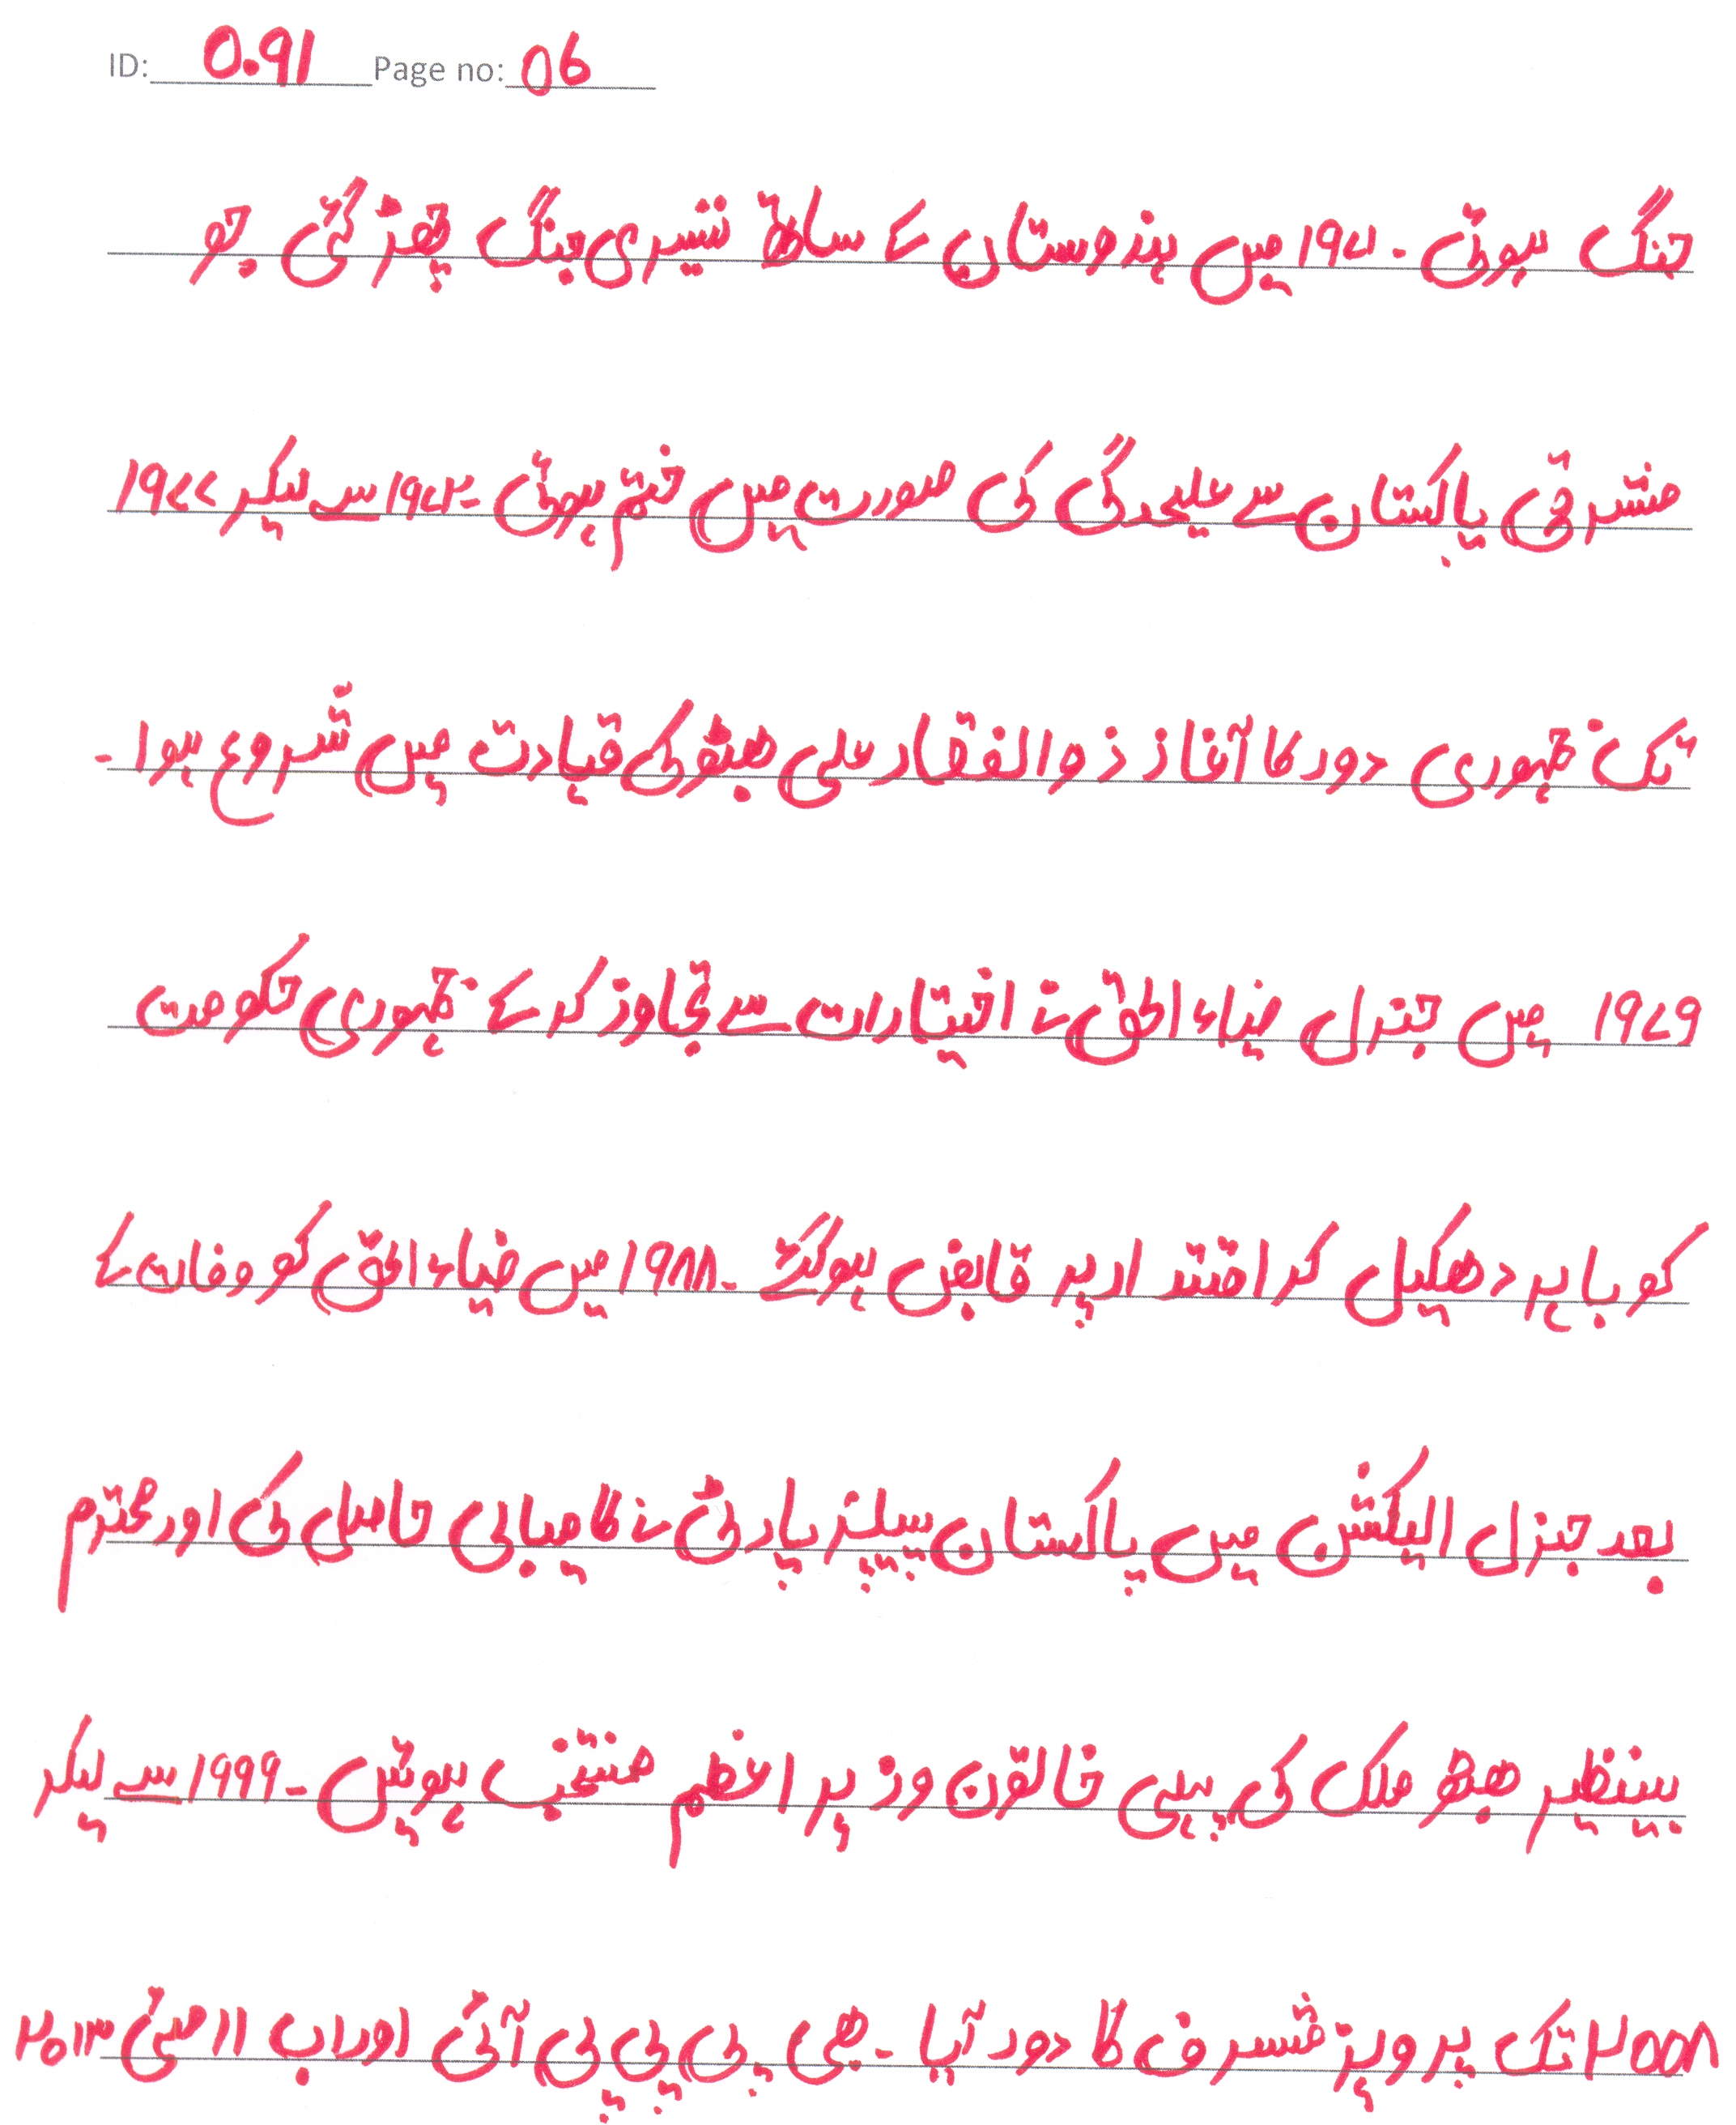 ID: 0.91 Page no: 06
جنگ ہوئی ۔ ۱۹۷۱ میں ہندوستان کے ساتھ تیسری جنگ چھڑ گئی جو
مشرقی پاکستان سے علیحدگی کی صورت میں ختم ہوئی ۔ ۱۹۷۲ سے لیکر ۱۹۷۷
تک جمہوری دور کا آغاز ذوالفقار علی بھٹو کی قیادت میں شروع ہوا ۔
۱۹۷۹ میں جنرل ضیاء الحق نے اختیارات سے تجاوز کر کے جمہوری حکومت
کو باہر دھکیل کر اقتدار پر قابض ہو گئے ۔ ۱۹۸۸ میں ضیاء الحق کو وفات کے
بعد جنرل الیکشن میں پاکستان پیپلز پارٹی نے کامیابی حاصل کی اور محترم
بینظیر بھٹو ملک کی پہلی خاتون وزیر اعظم منتخب ہوئیں ۔ ۱۹۹۹ سے لیکر
۲۰۰۸ تک پرویز مشرف کا دور آیا ۔ پھر پی پی پی آئی اور اب ۱۱ مئی ۲۰۱۳